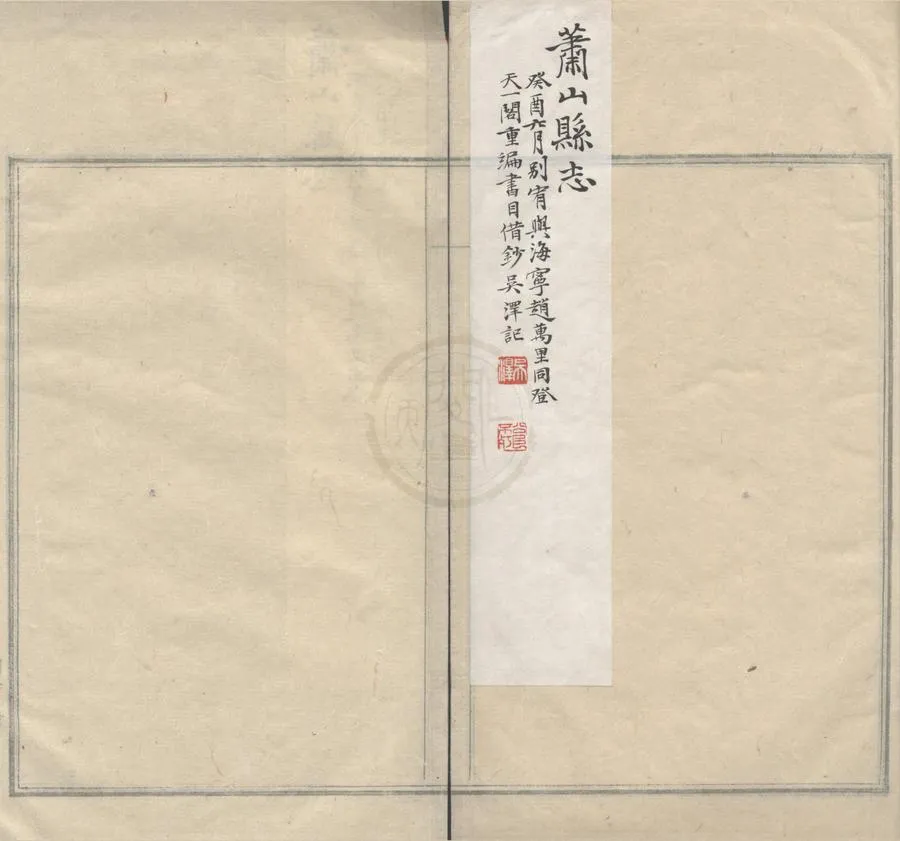 蕭山縣志
癸酉六月別宥與海寧趙萬里同登
天一閣重編書目借鈔吳澤記
吳澤